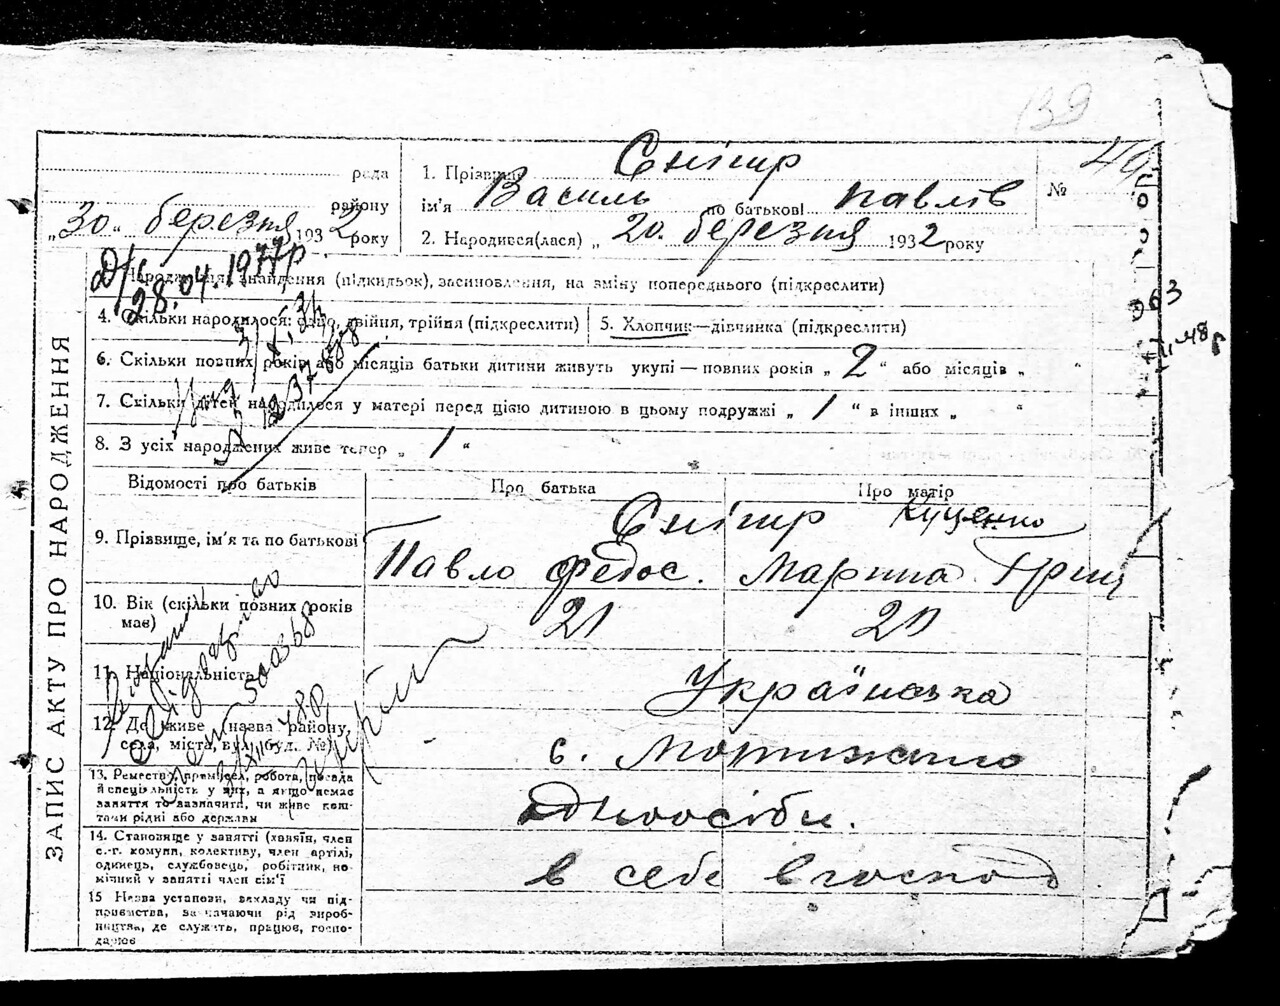 139
рада
1. Прізвище Снігир
№ 49
району
ім'я Василь по батькові Павлів
„30" березня 1932 року
2. Народився(лася) „20. березня 1932 року
28.04.1977р.
знайдення (підкильок), засиновлення, на зміну попереднього (підкреслити)
4. Скільки народилося: одно, двійня, трійня (підкреслити)
5. Хлопчик—дівчинка (підкреслити)
6. Скільки повних років або місяців батьки дитини живуть укупі — повних років „ 2 " або місяців „ "
7. Скільки дітей народилося у матері перед цією дитиною в цьому подружжі „ 1 " в інших „ "
8. З усіх народжених живе тепер „ 1 "
ЗАПИС АКТУ ПРО НАРОДЖЕННЯ
Відомості про батьків
Про батька
Про матір
9. Прізвище, ім'я та по батькові
Снігир Куценко
Павло Федос. Марина Гриц
10. Вік (скільки повних років має)
21
20
11. Національність
Українська
12. Де живе (назва району, села, міста, вул., буд. №)
с. Мотижино
13. Ремество, промисел, робота, посада
й спеціяльність у них, а якщо немає
заняття то зазначити, чи живе кош-
тами рідні або держави
Одноосібн.
14. Становище у занятті (хазяїн, член
с.-г. комуни, колективу, член артілі,
одинець, службовець, робітник, по-
мічний у занятті член сім'ї
в себе в господ
15 Назва установи, закладу чи під-
приємства, зазначаючи рід вироб-
ництва, де служить, працює, госпо-
дарює